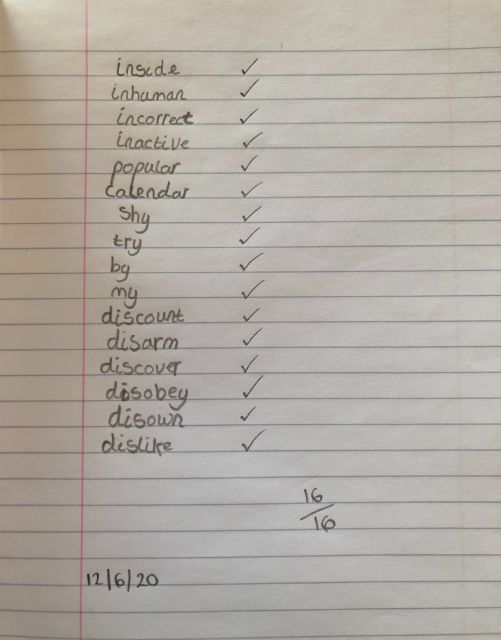 inside ✓
inhuman ✓
incorrect ✓
inactive ✓
popular ✓
calendar ✓
shy ✓
try ✓
by ✓
my ✓
discount ✓
disarm ✓
discover ✓
disobey ✓
disown ✓
dislike ✓
16/16
12/6/20